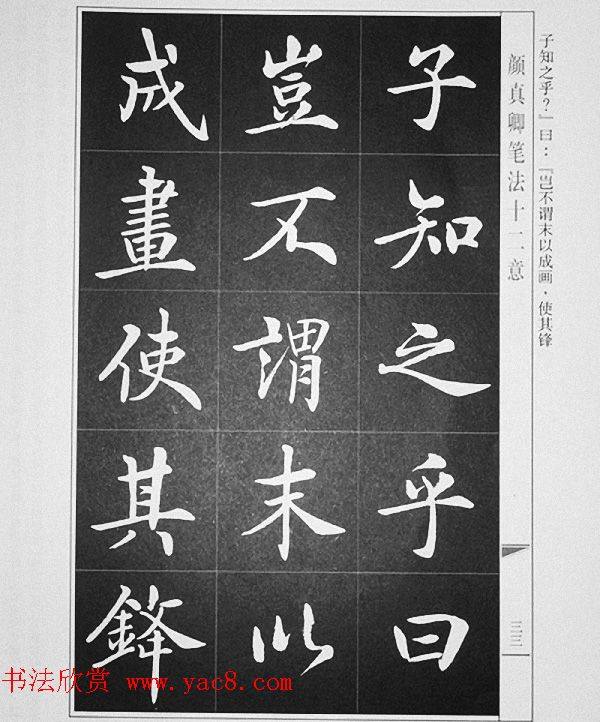 子知之乎？』曰：『岂不谓末以成画，使其锋
颜真卿笔法十二意
三三
子知之乎曰
豈不謂末以
成畫使其鋒
书法欣赏 www.yac8.com